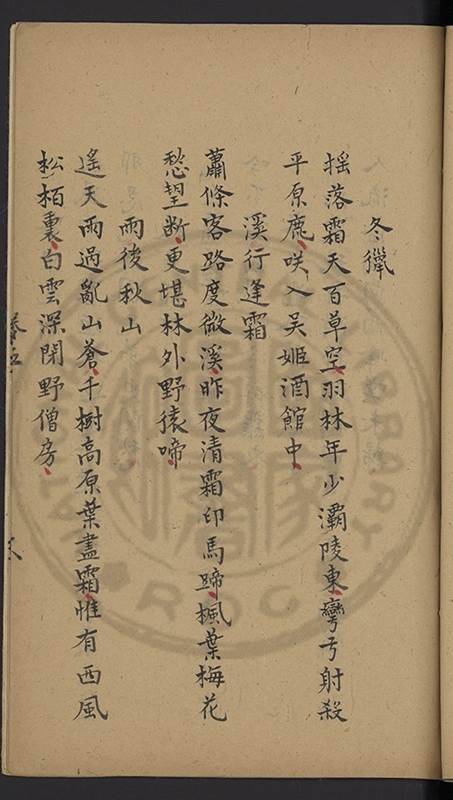 冬獵
搖落霜天百草空羽林年少灞陵東彎弓射殺
平原鹿咲入吳姬酒館中
溪行逢霜
蕭條客路度微溪昨夜清霜印馬蹄楓葉梅花
愁望斷更堪林外野猿啼
雨後秋山
遙天雨過亂山蒼千樹高原葉盡霜惟有西風
松栢裏白雲深閉野僧房